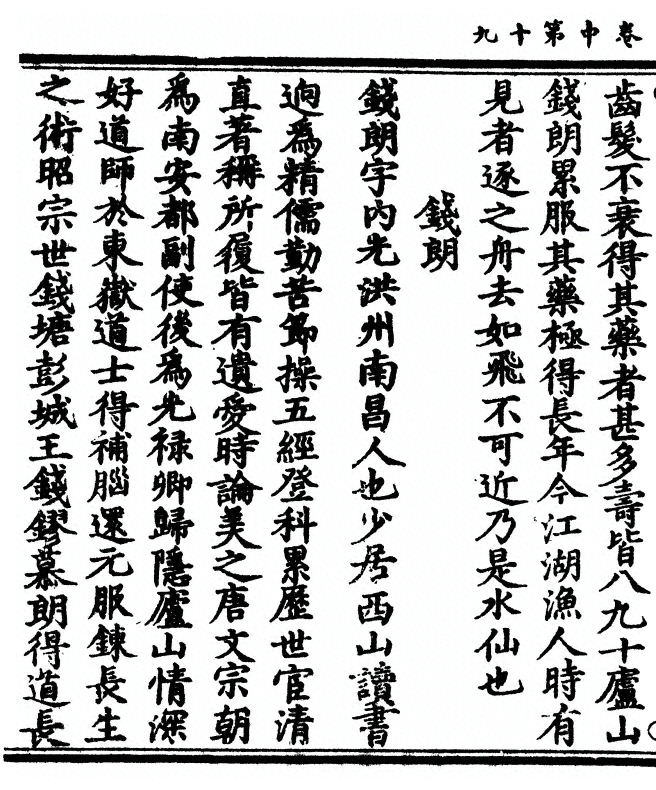 卷中第十九
齒髮不衰得其藥者甚多壽皆八九十廬山
錢朗累服其藥極得長年今江湖漁人時有
見者逐之舟去如飛不可近乃是水仙也
錢朗
錢朗字內光洪州南昌人也少居西山讀書
逈為精儒勤苦節操五經登科累歷世宦清
直著稱所履皆有遺愛時論美之唐文宗朝
為南安都副使後為光祿卿歸隱廬山情深
好道師於東嶽道士得補腦還元服鍊長生
之術昭宗世錢塘彭城王錢鏐慕朗得道長